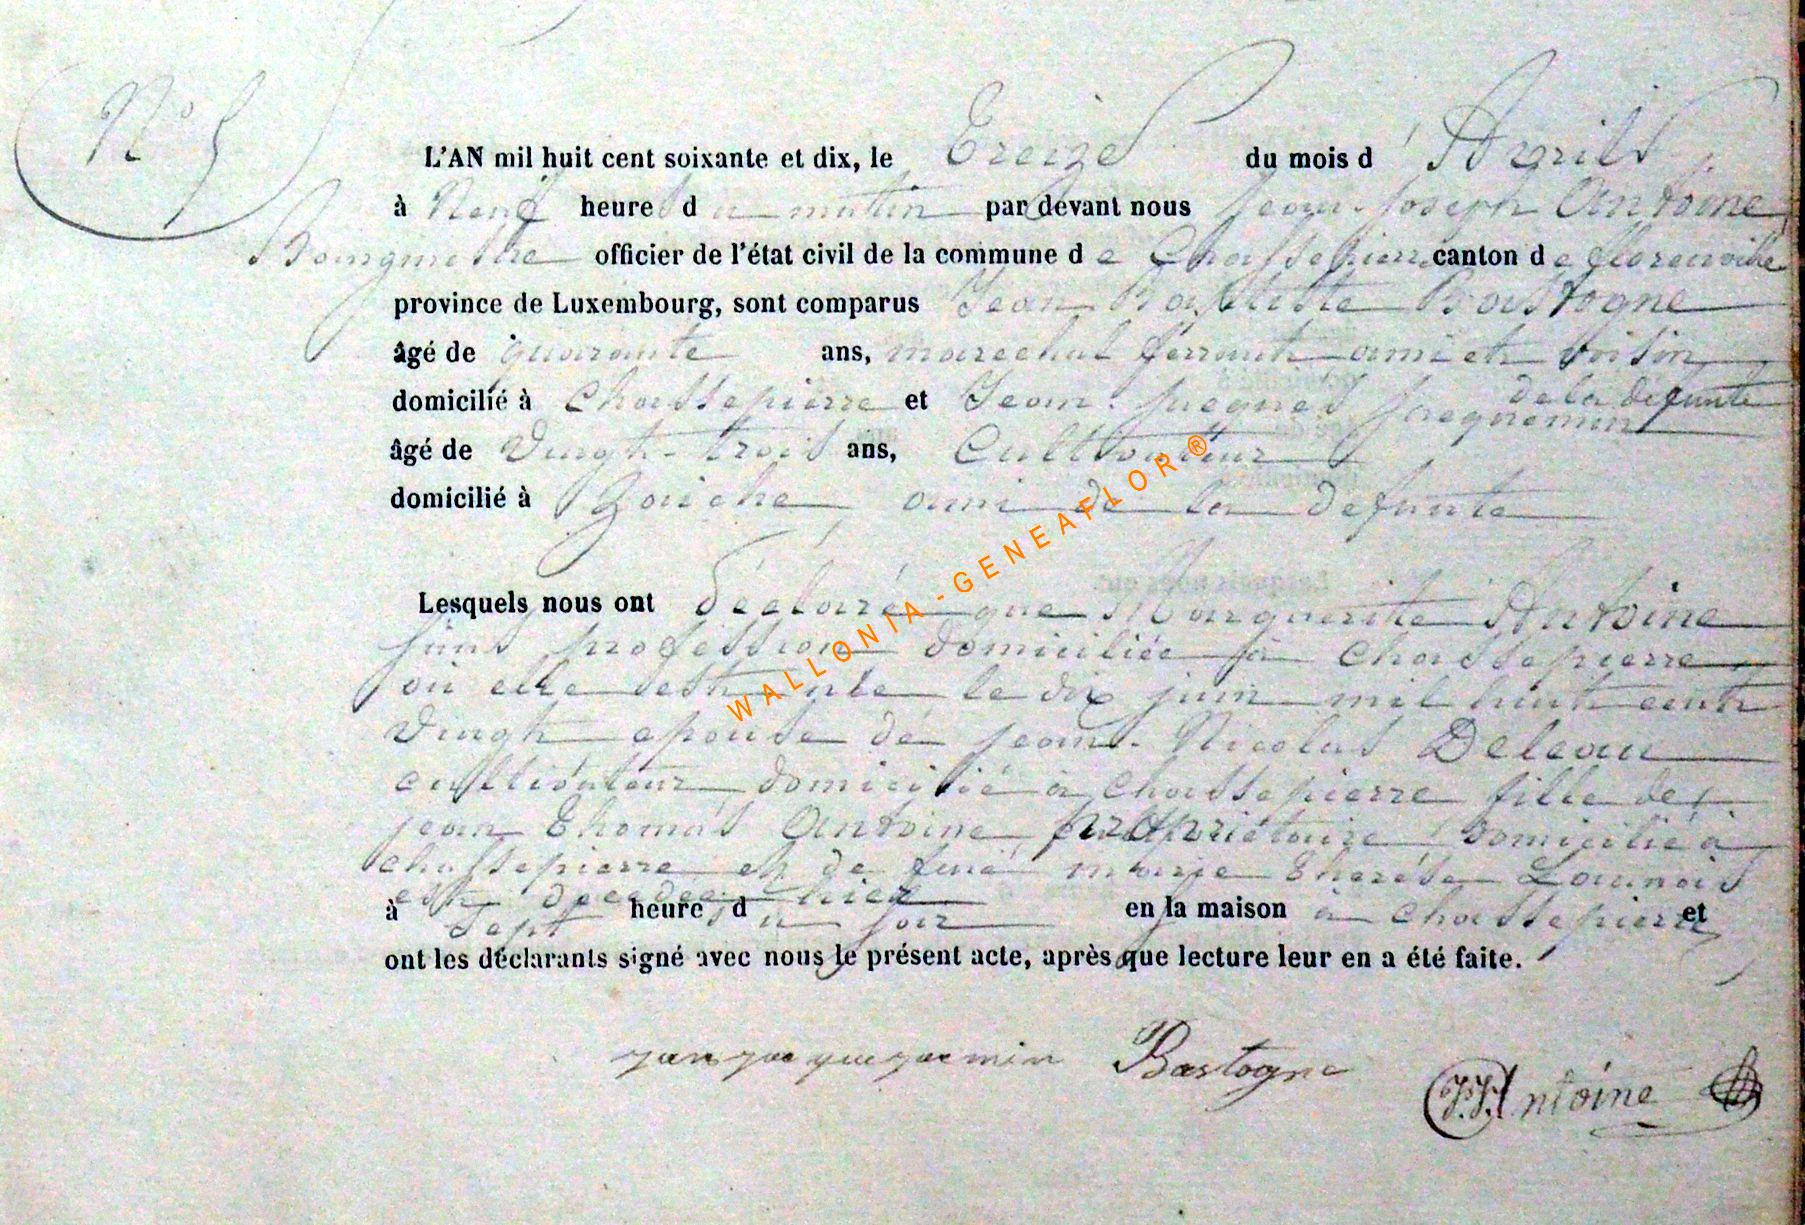 N° 5
L'AN mil huit cent soixante et dix, le Treize du mois d'Avril
à Neuf heures du matin par devant nous Jean-Joseph Antoine
Bourgmestre officier de l'état civil de la commune de Chassepierre canton de florenville
province de Luxembourg, sont comparus Jean Baptiste Bastogne
âgé de quarante ans, marechal ferrant ami et voisin
de la défunte
domicilié à Chassepierre et Jean-Jacques Jacquemin
âgé de Vingt-trois ans, Cultivateur
domicilié à ami de la defunte
Lesquels nous ont déclaré que Marguerite Antoine
sans profession domiciliée à Chassepierre
où elle est née le dix juin mil huit cent
Vingt epouse de jean-Nicolas Deleau
cultivateur domicilié à chassepierre fille de
jean Thomas Antoine propriétaire domicilié à
chassepierre et de marie Therése
est decedée hier
à Sept heures du soir en sa maison à chassepierre et
ont les déclarants signé avec nous le présent acte, après que lecture leur en a été faite.
jan jacque jacmin Bastogne J.J. Antoine
WALLONIA-GENEAFLOR®